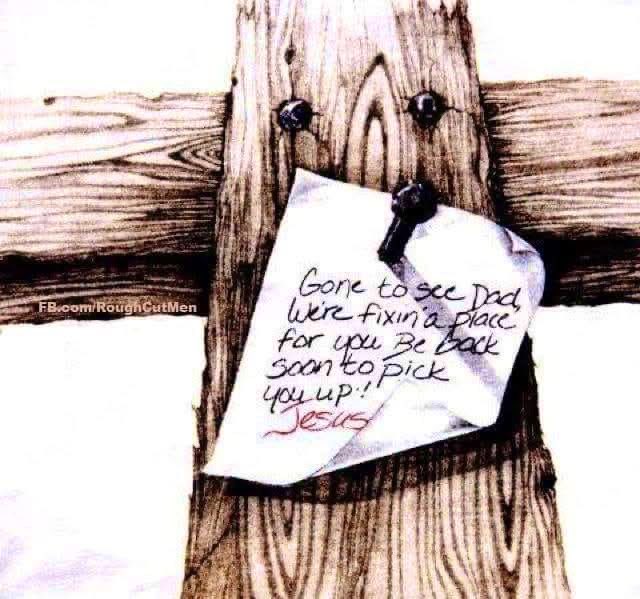 FB.com/RoughCutMen
Gone to see Dad,
We're fixin' a place
for you Be back
soon to pick
you up!
Jesus